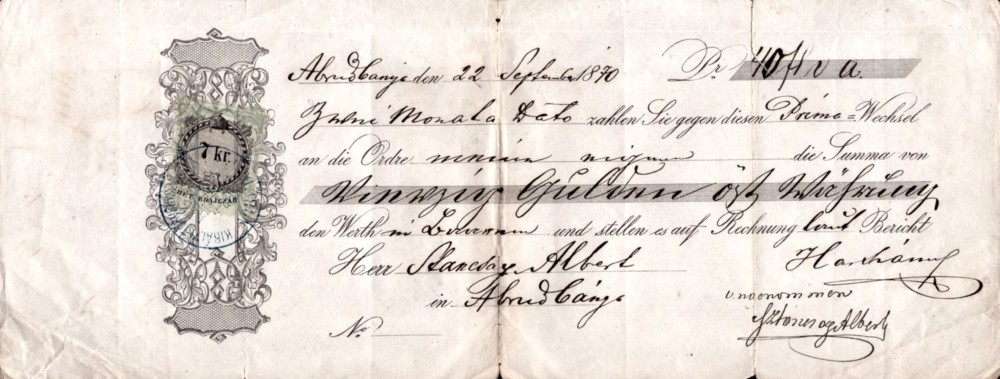 Abrudbanya den 22 September 1870 Pr. 40 fl ö w.
Zwei Monata Dato zahlen Sie gegen diesen Prima=Wechsel
an die Ordre meine eigene die Summa von
Vierzig Gulden öst Währung
den Werth in und stellen es auf Rechnung laut Bericht
Herr Stancsay Albert
in Abrudbánya
angenommen
Albert
No.
7 kr.
HÉT KRAJCZÁR